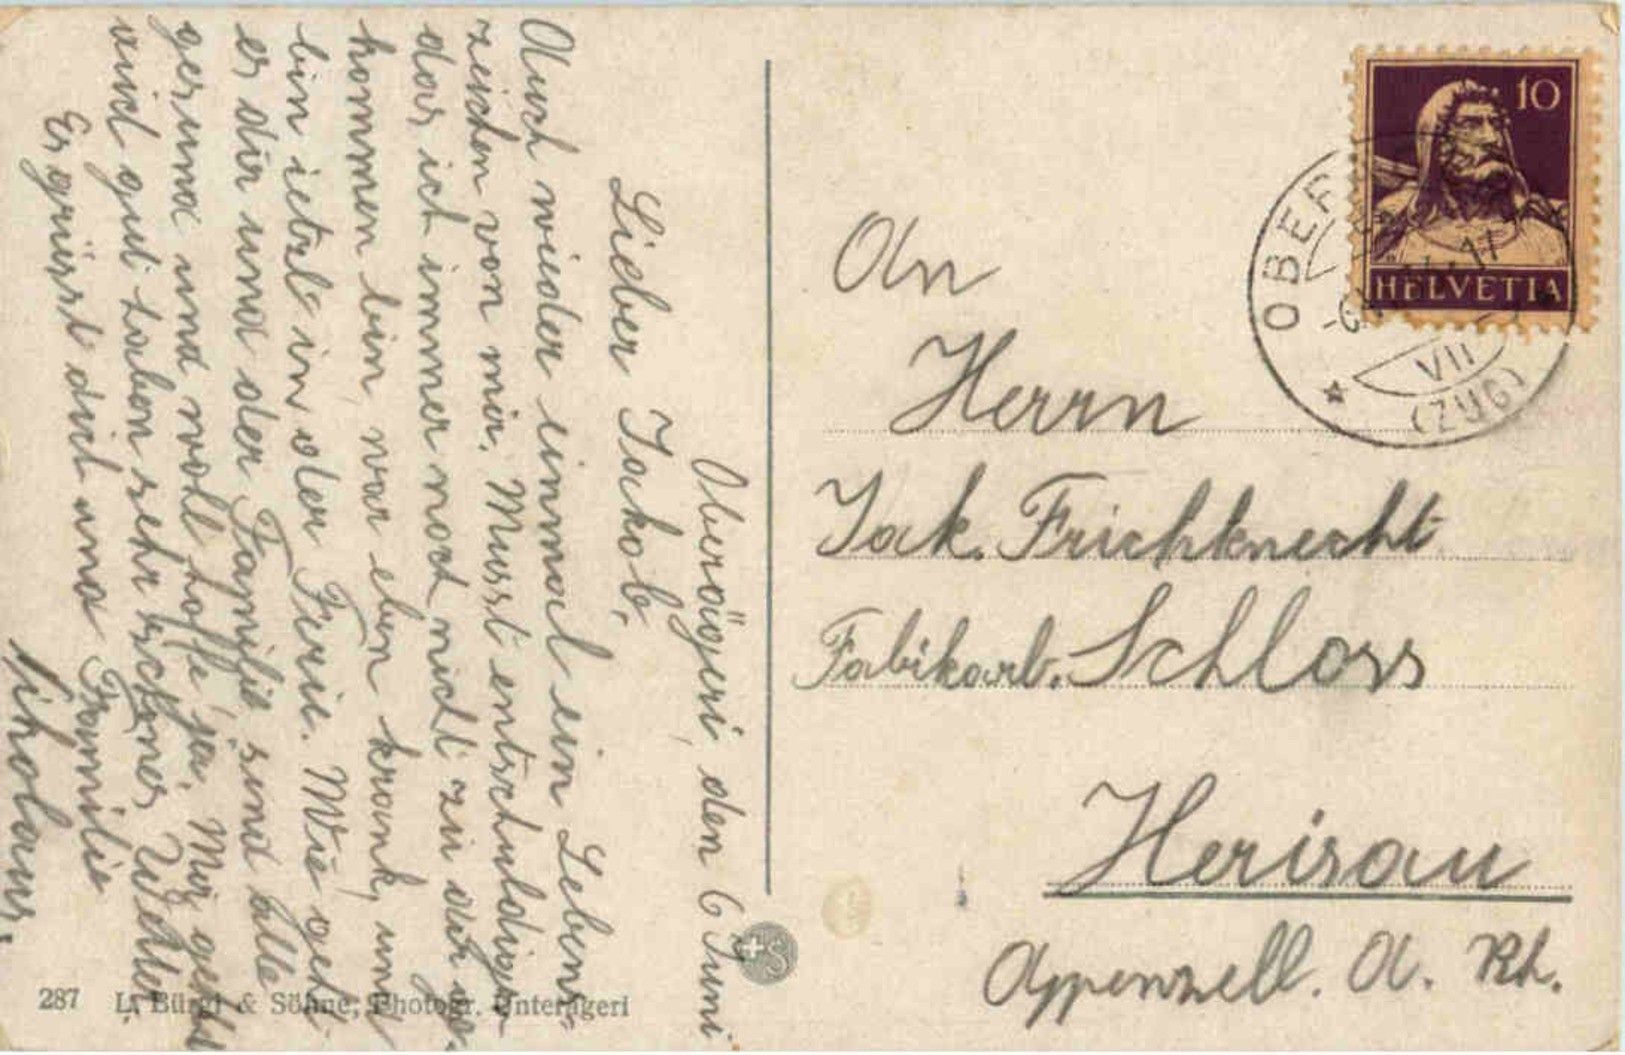 Oberägeri, den 6 Juni
Lieber Jackob,
Auch wieder einmal ein Lebens-
zeichen von mir. Musst entschuldigen
das ich immer noch nicht zu dir ge-
kommen bin, war eben krank, und
bin ietzt in der Ferie. Wie geht
es dir und der Familie, sind alle
gesund und wohl, hoffe ja. Mir geht
und gut haben sehr schönes Wetter.
Es grüsst dich und Familie
Nikolaus
An
Herrn
Jak. Frischknecht
Fabikarb. Schloss
Herisau
Appenzell. A. Rh.
10
HELVETIA
OBER
VII
(ZUG)
287 L. Bürgi & Söhne, Photogr. Unterägeri
+S